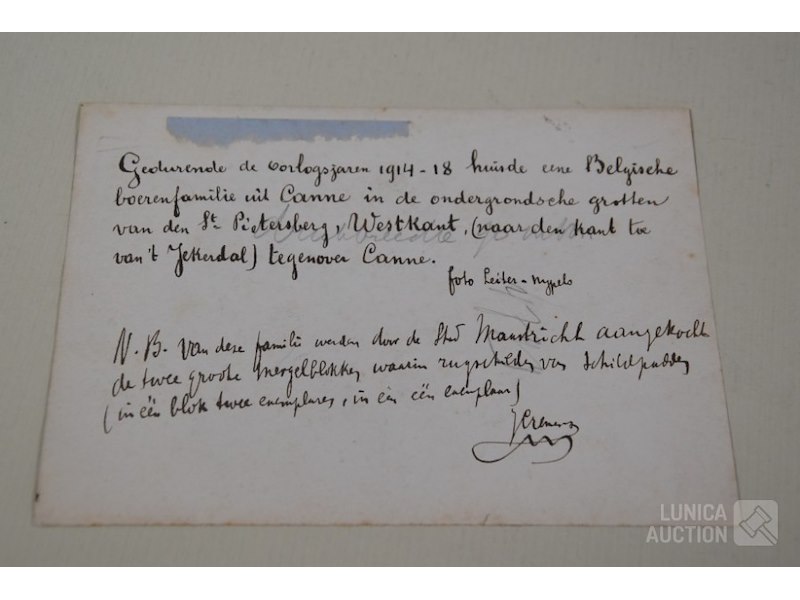 Gedurende de Oorlogsjaren 1914-18 huisde eene Belgische
boerenfamilie uit Canne in de ondergrondsche grotten
van den St. Pietersberg, Westkant, (naar den kant toe
van 't Jekerdal) tegenover Canne.
foto Leiter-Nypels
N.B. van deze familie werden door de Stad Maastricht aangekocht
de twee groote mergelblokken waarin rugschilden van Schildpadden
(in één blok twee exemplares, in één één exemplaar)
JCremers
LUNICA
AUCTION